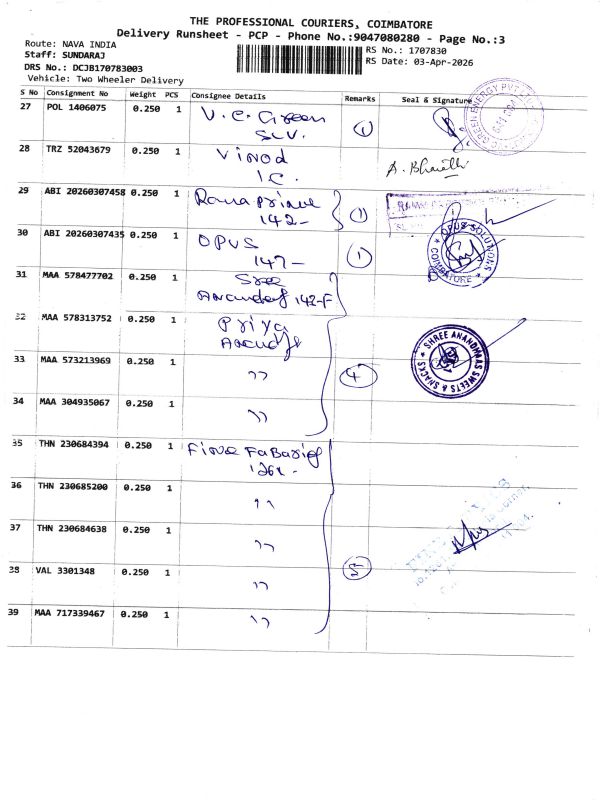 THE PROFESSIONAL COURIERS, COIMBATORE
Delivery Runsheet - PCP - Phone No.:9047080280 - Page No.:3
Route: NAVA INDIA
Staff: SUNDARAJ
DRS No.: DCJB170783003
Vehicle: Two Wheeler Delivery
RS No.: 1707830
RS Date: 03-Apr-2026
S No Consignment No Weight PCS Consignee Details Remarks Seal & Signature
27 POL 1406075 0.250 1 V.C. Green 1
28 TRZ 52043679 0.250 1 Vinod A. Bharathi
I.C.
29 ABI 20260307458 0.250 1 Rama Prime 1
142-
30 ABI 20260307435 0.250 1 OPUS 1 OPUS SOLUTIONS COIMBATORE
147-
31 MAA 578477702 0.250 1 Sree
Anandas 142-F
32 MAA 578313752 0.250 1 Priya
33 MAA 573213969 0.250 1 " 4 SHREE ANANDHAAS SWEETS & SNACKS
34 MAA 304935067 0.250 1 "
35 THN 230684394 0.250 1
36 THN 230685200 0.250 1 "
37 THN 230684638 0.250 1 "
38 VAL 3301348 0.250 1 " 5
39 MAA 717339467 0.250 1 "